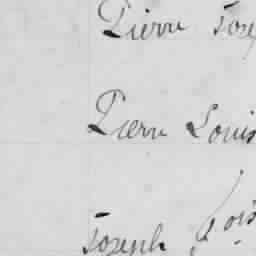 Pierre Jose
Pierre Louis
Joseph